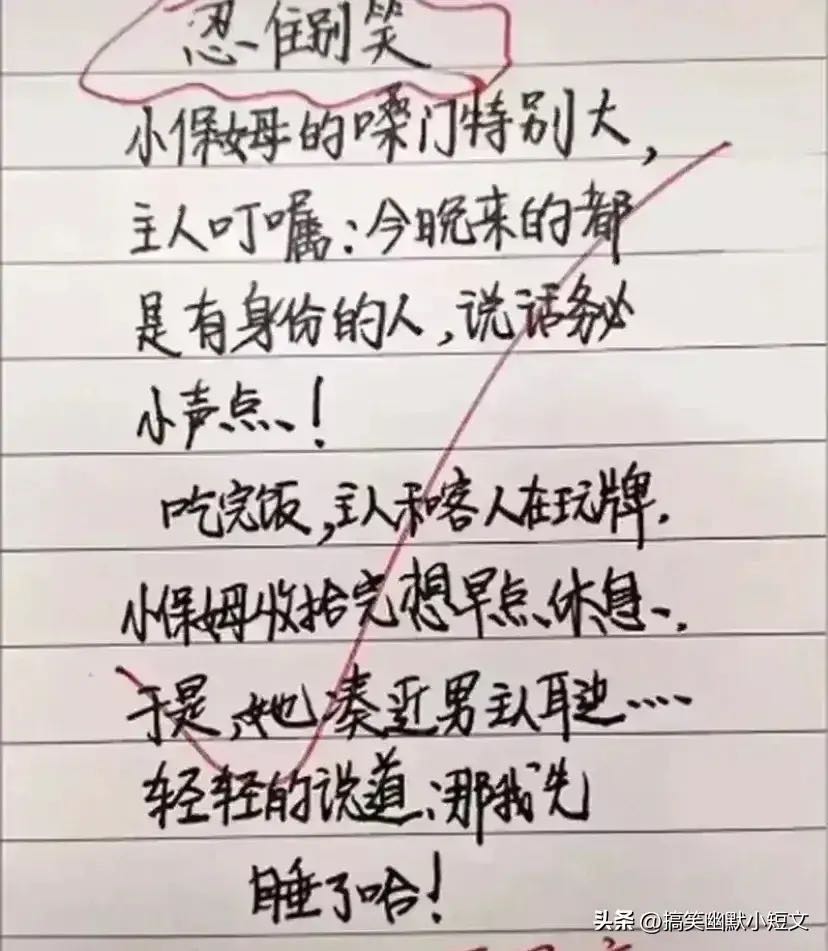 忍住别笑
小保姆的嗓门特别大,
主人叮嘱:今晚来的都
是有身份的人,说话务必
小声点!
吃完饭,主人和客人在玩牌.
小保姆收拾完想早点休息.
于是,她凑近男主人耳边····
轻轻的说道:那我先
睡了哈!
头条 @搞笑幽默小短文